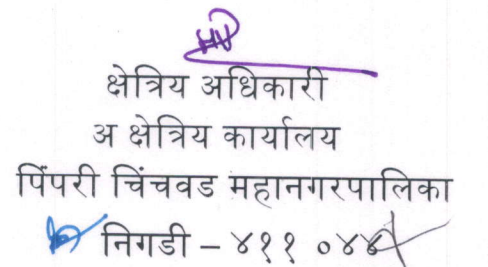 क्षेत्रिय अधिकारी
अ क्षेत्रिय कार्यालय
पिंपरी चिंचवड महानगरपालिका
निगडी – ४११ ०४४